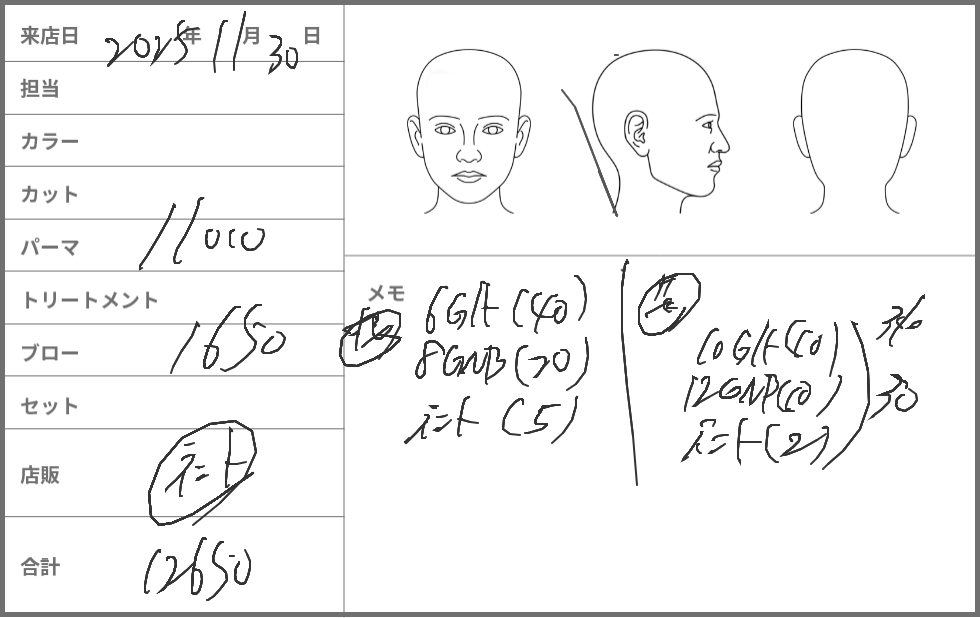 来店日 2025年 11月 30日
担当
カラー
カット
パーマ 11000
トリートメント
ブロー 1650
セット
店販 ミニト
合計 12650
メモ
6G/t (40)
8GNB (20)
ミニト (5)
10G/t (10)
12GNP (10)
ミニト (2)
3%
30